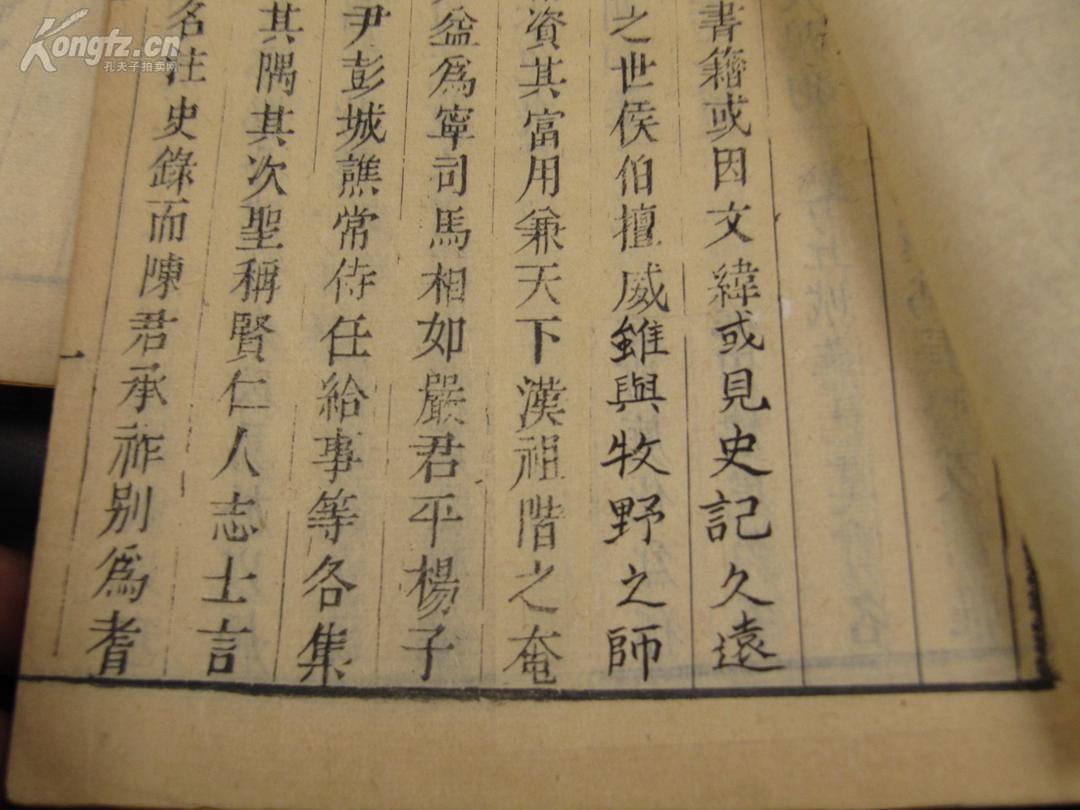 書籍或因文緯或見史記久遠
之世侯伯擅威雖與牧野之師
資其富用兼天下漢祖階之奄
益爲寧司馬相如嚴君平楊子
尹彭城譙常侍任給事等各集
其隅其次聖稱賢仁人志士言
名注史錄而陳君承祚別爲耆
一
Kongfz.cn
孔夫子拍卖网